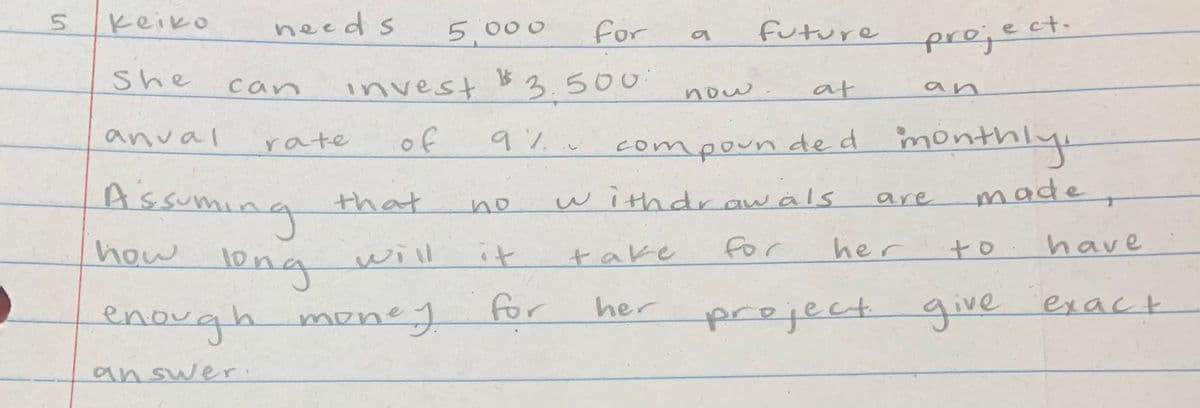 5 Keiko needs 5,000 for a future project.
She can invest $3.500 now. at an
anual rate of 9% compounded monthly.
Assuming that no withdrawals are made,
how long will it take for her to have
enough money for her project give exact
answer.